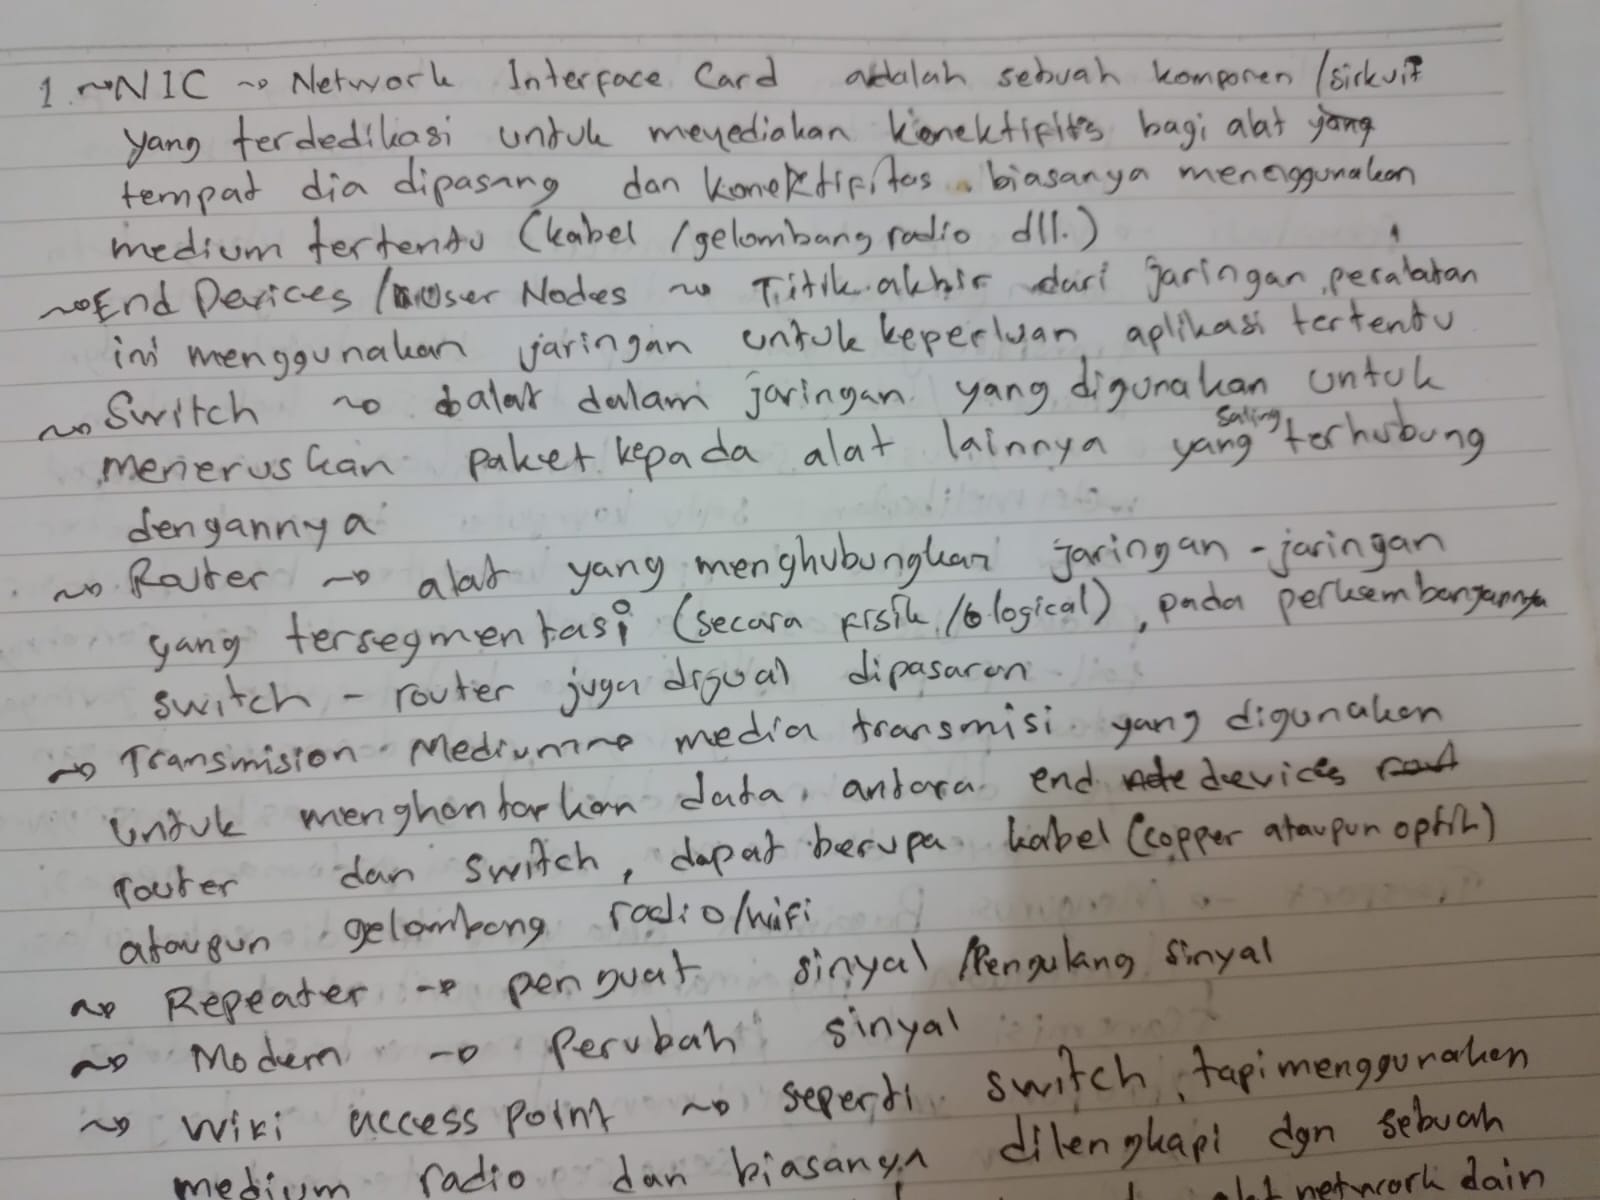 1. ~NIC ~> Network Interface Card adalah sebuah komponen /sirkuit
yang terdedikasi untuk meyediakan konektifits bagi alat
tempat dia dipasang dan konektifitas biasanya menenggunakan
medium tertentu (kabel /gelombang radio dll.)
~> End Devices /User Nodes ~> Titik akhir dari jaringan, peralatan
ini menggunakan jaringan untuk keperluan aplikasi tertentu
~> Switch ~> alat dalam jaringan yang digunakan untuk
meneruskan paket kepada alat lainnya yang saling terhubung
dengannya
~> Router ~> alat yang menghubungkan jaringan - jaringan
yang tersegmentasi (secara fisik / logical), pada perkembangannya
switch - router juga dijual dipasaran
~> Transmision Medium ~> media transmisi yang digunakan
untuk menghantarkan data antara end devices
router dan switch, dapat berupa kabel (copper ataupun optik)
ataupun gelombang radio/wifi
~> Repeater -> penguat sinyal /Pengulang sinyal
~> Modem -> Perubah sinyal
~> Wifi access point ~> seperti switch, tapi menggunaken
medium radio dan biasanya dilengkapi dgn sebuah
network dain